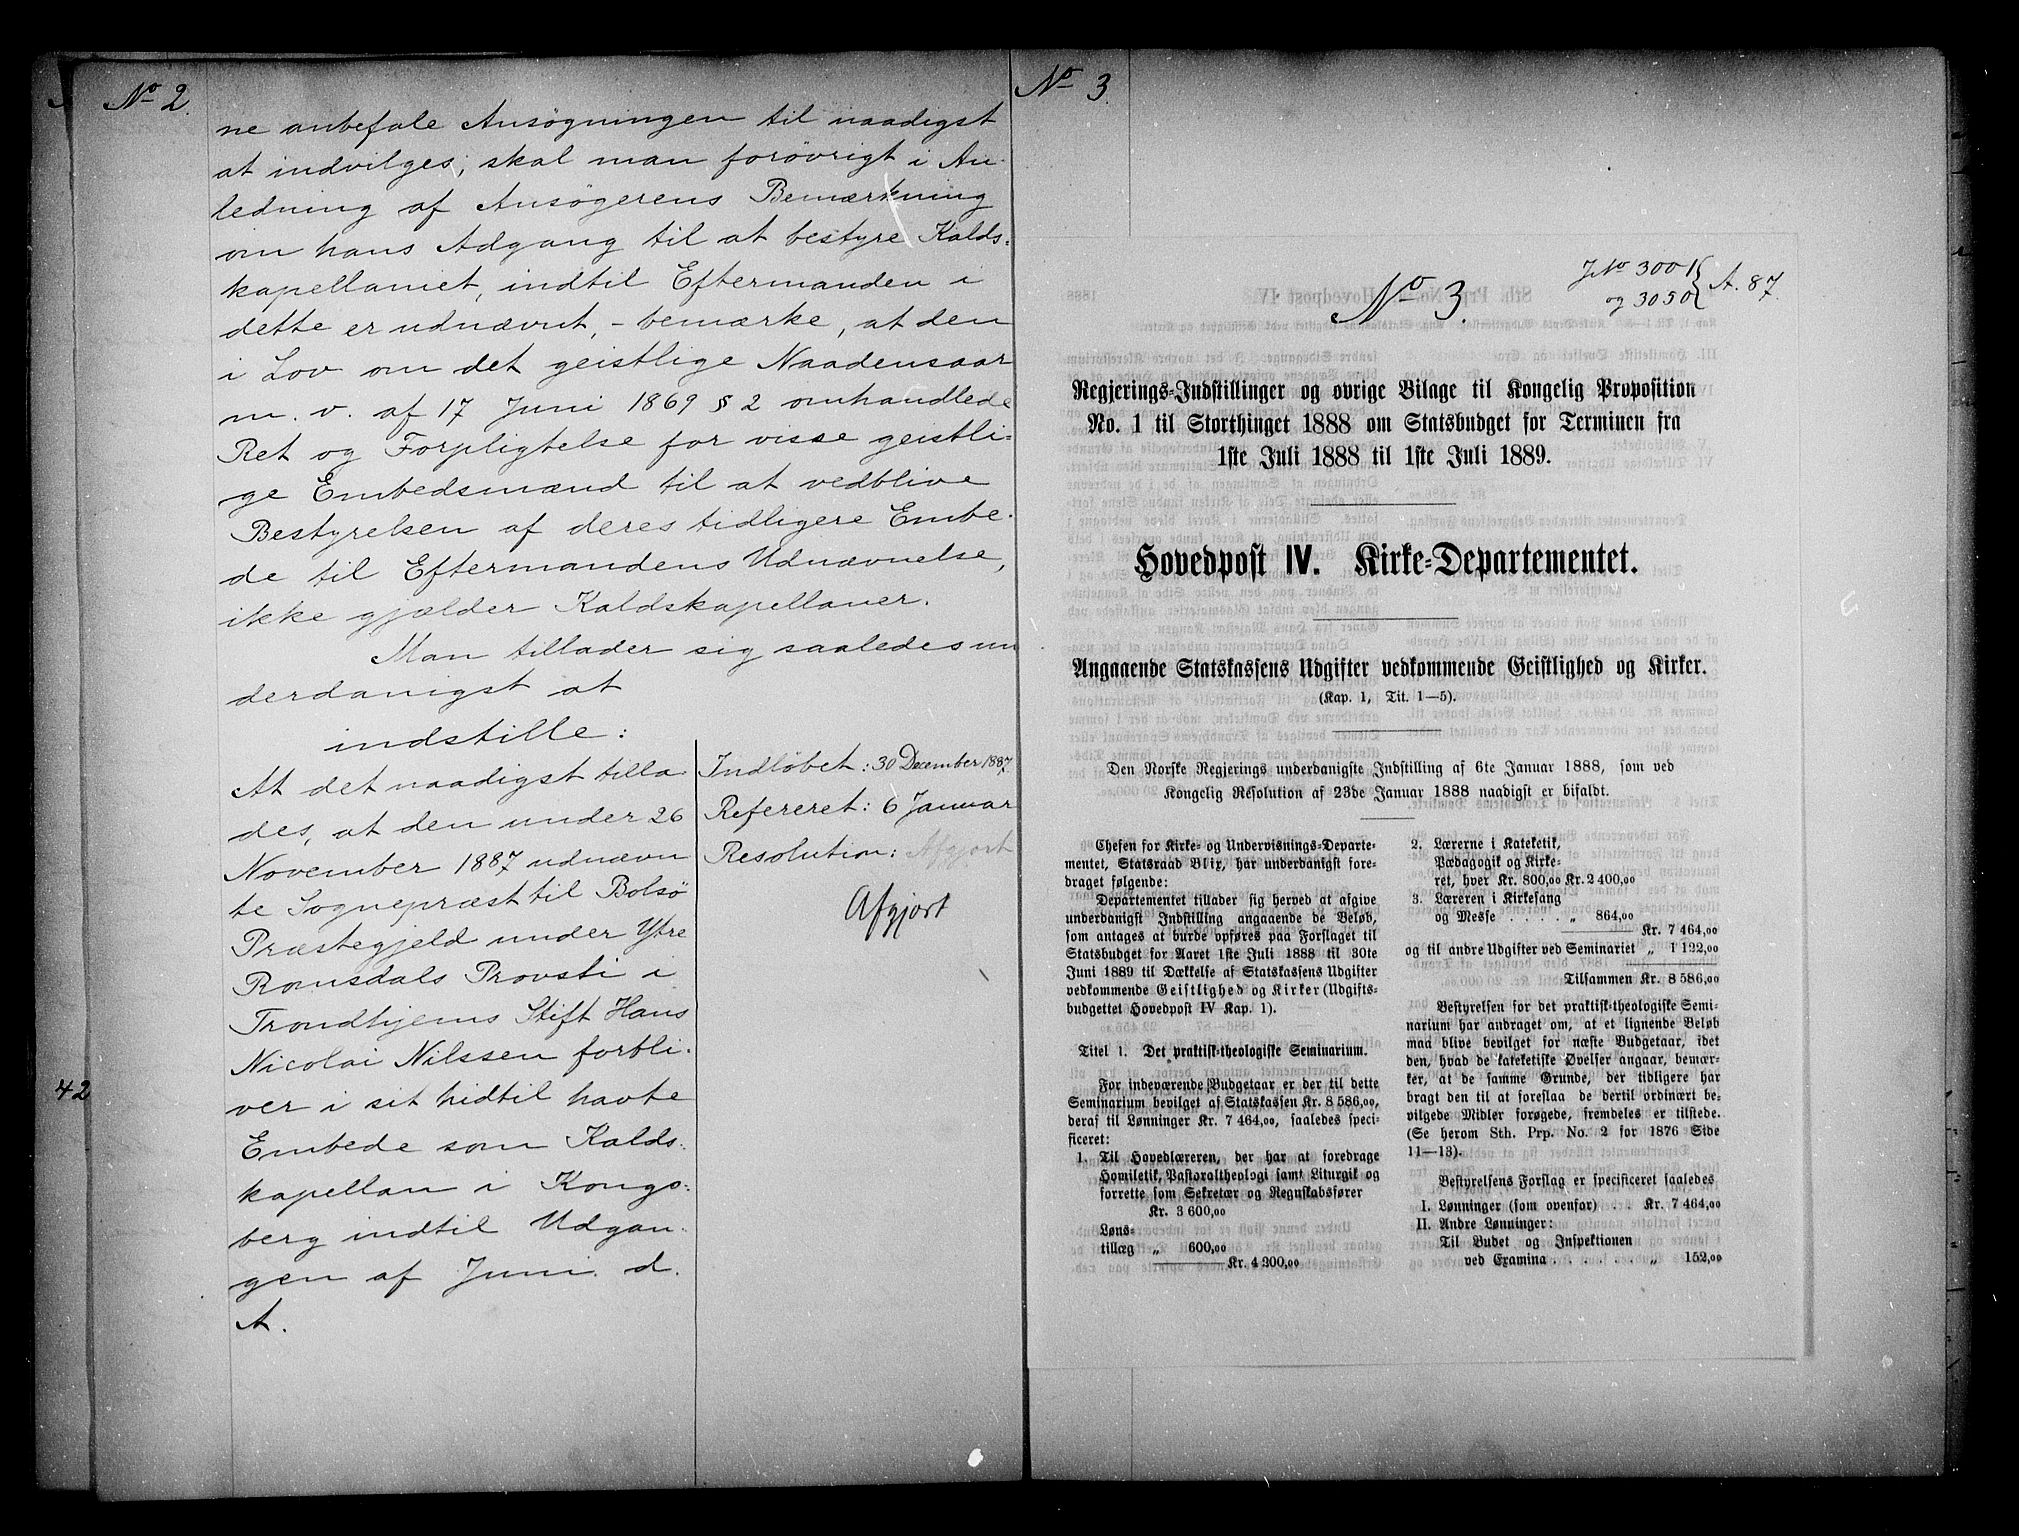 No 2.
ne anbefale Ansøgningen til naadigst
at indvilges, skal man forøvrigt i An-
ledning af Ansøgerens Bemærkning
om hans Adgang til at bestyre Kalds-
kapellaniet, indtil Eftermanden i
dette er udnævnt, - bemærke, at den
i Lov om det geistlige Naadensaar
m. v. af 17 Juni 1869 § 2 omhandlede
Ret og Forpligtelse for visse geistli-
ge Embedsmænd til at vedblive
Bestyrelsen af deres tidligere Embe-
de til Eftermandens Udnævnelse,
ikke gjælder Kaldskapellaner.
Man tillader sig saaledes un
derdanigst at
indstille:
At det naadigst tilla
des, at den under 26
November 1887 udnævn
te Sognepræst til Bolsø
Præstegjeld under Ytre
Romsdals Provsti i
Trondhjems Stift Hans
Nicolai Nilssen forbli-
ver i sit hidtil havte
Embede som Kalds-
kapellan i Kongs-
berg indtil Udgan-
gen af Juni d.
A.
Indløbet: 30 December 1887.
Refereret: 6 Januar
Resolution: Afgjort
Afgjort
42
No 3.
No 3.
JNo 3001
og 3050
A. 87.
Regjerings-Indstillinger og øvrige Bilage til Kongelig Proposition
No. 1 til Storthinget 1888 om Statsbudget for Terminen fra
1ste Juli 1888 til 1ste Juli 1889.
Hovedpost IV. Kirke-Departementet.
Angaaende Statskassens Udgifter vedkommende Geistlighed og Kirker.
(Kap. 1, Tit. 1—5).
Den Norske Regjerings underdanigste Indstilling af 6te Januar 1888, som ved
Kongelig Resolution af 23de Januar 1888 naadigst er bifaldt.
Chefen for Kirke- og Undervisnings-Departe-
mentet, Statsraad Blix, har underdanigst fore-
draget følgende:
Departementet tillader sig herved at afgive
underdanigst Indstilling angaaende de Beløb,
som antages at burde opføres paa Forslaget til
Statsbudget for Aaret 1ste Juli 1888 til 30te
Juni 1889 til Dækkelse af Statskassens Udgifter
vedkommende Geistlighed og Kirker (Udgifts-
budgettet Hovedpost IV Kap. 1).
Titel 1. Det praktisk-theologiske Seminarium.
For indeværende Budgetaar er der til dette
Seminarium bevilget af Statskassen Kr. 8 586,00,
deraf til Lønninger Kr. 7 464,00, saaledes speci-
ficeret:
1. Til Hovedlæreren, der har at foredrage
Homiletik, Pastoraltheologi samt Liturgik og
forrette som Sekretær og Regnskabsfører
Kr. 3 600,00
Løns-
tillæg „ 600,00
Kr. 4 200,00
2. Lærerne i Kateketik,
Pædagogik og Kirke-
ret, hver Kr. 800,00 Kr. 2 400,00
3. Læreren i Kirkesang
og Messe . . . . . „ 864,00
Kr. 7 464,00
og til andre Udgifter ved Seminariet „ 1 122,00
Tilsammen Kr. 8 586,00
Bestyrelsen for det praktisk-theologiske Semi-
narium har andraget om, at et lignende Beløb
maa blive bevilget for næste Budgetaar, idet
den, hvad de kateketiske Øvelser angaar, bemær-
ker, at de samme Grunde, der tidligere har
bragt den til at foreslaa de dertil ordinært be-
vilgede Midler forøgede, fremdeles er tilstede.
(Se herom Sth. Prp. No. 2 for 1876 Side
11—13).
Bestyrelsens Forslag er specificeret saaledes
I. Lønninger (som ovenfor) . . Kr. 7 464,00
II. Andre Lønninger:
Til Budet og Inspektionen
ved Examina . . . . . „ 152,00